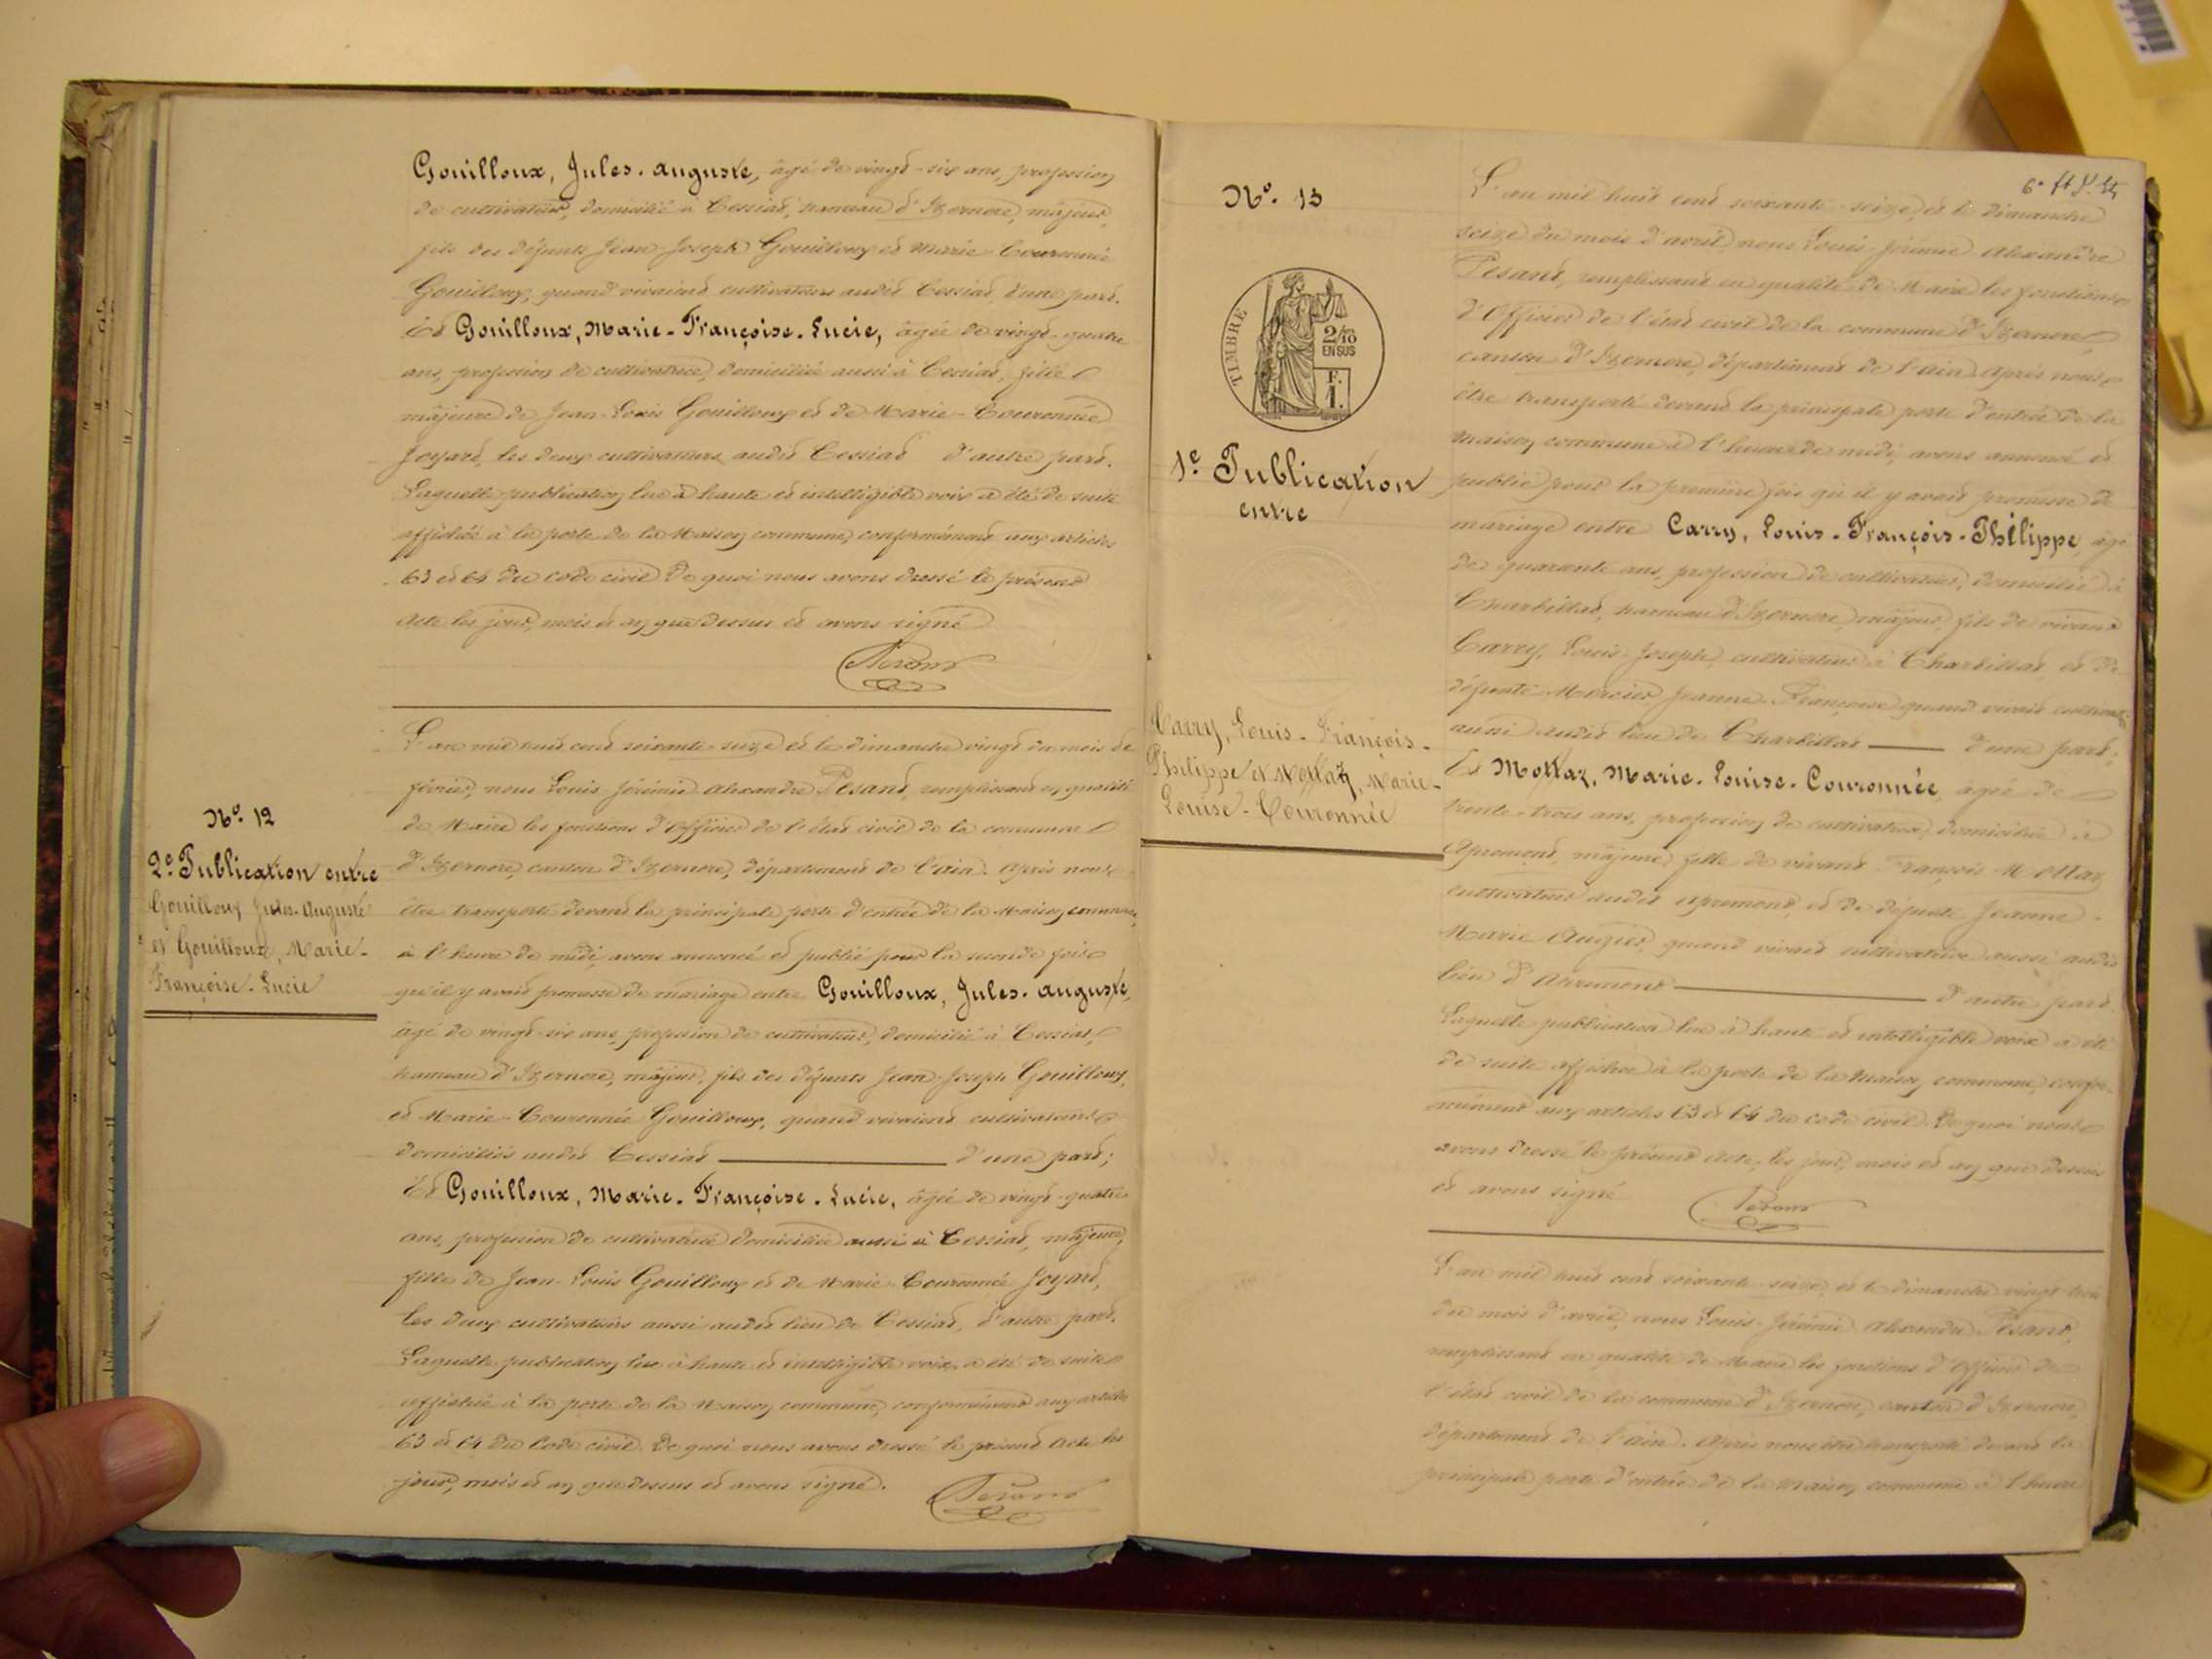 Gouilloux, Jules. auguste, âgé de vingt-six ans, profession
de cultivateur, domicilié à Cessiat, hameau d'Izernore, majeur,
fils des défunts Jean-Joseph Gouilloux et Marie-Couronnée
Gouilloux, quand vivaient cultivateurs audit Cessiat, d'une part.
Et Gouilloux, Marie-Françoise-Lucie, âgée de vingt-quatre
ans, profession de cultivatrice, domiciliée aussi à Cessiat, fille
majeure de Jean-Louis Gouilloux et de Marie-Couronnée
Joyard, les deux cultivateurs audit Cessiat d'autre part.
Laquelle publication lue à haute et intelligible voix a été de suite
affichée à la porte de la Maison commune, conformément aux articles
63 et 64 du code civil De quoi nous avons dressé le présent
acte les jour, mois et an que dessus et avons signé
Pesant
Nº. 12
2e. Publication entre
Gouilloux Jules-Auguste
et Gouilloux, Marie-
Françoise-Lucie
L'an mil huit cent soixante-seize et le dimanche vingt du mois de
février, nous Louis-Jérémie Alexandre Pesant, remplissant en qualité
de Maire les fonctions d'Officier de l'état civil de la commune
d'Izernore, canton d'Izernore, département de l'ain. Après nous
être transporté devant la principale porte d'entrée de la Maison commune,
à l'heure de midi, avons annoncé et publié pour la seconde fois
qu'il y avait promesse de mariage entre Gouilloux, Jules. auguste,
âgé de vingt-six ans, profession de cultivateur, domicilié à Cessiat,
hameau d'Izernore, majeur, fils des défunts Jean-Joseph Gouilloux,
et Marie-Couronnée Gouilloux, quand vivaient cultivateurs
domiciliés audit Cessiat d'une part;
Et Gouilloux, Marie-Françoise-Lucie, âgée de vingt-quatre
ans, profession de cultivatrice domiciliée aussi à Cessiat, majeure,
fille de Jean-Louis Gouilloux et de Marie-Couronnée Joyard,
les deux cultivateurs aussi audit lieu de Cessiat, d'autre part.
Laquelle publication lue à haute et intelligible voix a été de suite
affichée à la porte de la Maison commune, conformément aux articles
63 et 64 du Code civil. De quoi nous avons dressé le présent acte les
jour, mois et an que dessus et avons signé.
Pesant
Nº. 13
TIMBRE
2/10
EN SUS
F.
1.
1e. Publication
entre
Carry, Louis-François-
Philippe et Mottaz, Marie-
Louise-Couronnée
6e
L'an mil huit cent soixante-seize, et le dimanche
seize du mois d'avril, nous Louis-Jérémie Alexandre
Pesant, remplissant en qualité de Maire les fonctions
d'Officier de l'état civil de la commune d'Izernore,
canton d'Izernore, département de l'ain Après nous
être transporté devant la principale porte d'entrée de la
maison commune à l'heure de midi, avons annoncé et
publié pour la première fois qu'il y avait promesse de
mariage entre Carry, Louis-François-Philippe, âgé
de quarante ans, profession de cultivateur, domicilié à
Charbillat, hameau d'Izernore, majeur, fils de vivant
Carry, Louis-Joseph, cultivateur à Charbillat, et de
défunte Mercier Jeanne-Françoise quand vivait cultivatrice
aussi audit lieu de Charbillat d'une part;
Et Mottaz, Marie-Louise-Couronnée, âgée de
trente-trois ans, profession de cultivatrice, domiciliée à
Apremont, majeure, fille de vivant François Mottaz
cultivateur audit Apremont, et de défunte Jeanne-
Marie Augier, quand vivait cultivatrice aussi audit
lieu d'Apremont d'autre part
Laquelle publication lue à haute et intelligible voix a été
de suite affichée à la porte de la Maison commune, confor-
mément aux articles 63 et 64 du code civil. De quoi nous
avons dressé le présent acte, les jour, mois et an que dessus
et avons signé
Pesant
L'an mil huit cent soixante-seize, et le dimanche vingt-trois
du mois d'avril, nous Louis-Jérémie Alexandre Pesant,
remplissant en qualité de Maire les fonctions d'Officier de
l'état civil de la commune d'Izernore, canton d'Izernore,
département de l'ain. Après nous être transporté devant la
principale porte d'entrée de la Maison commune à l'heure